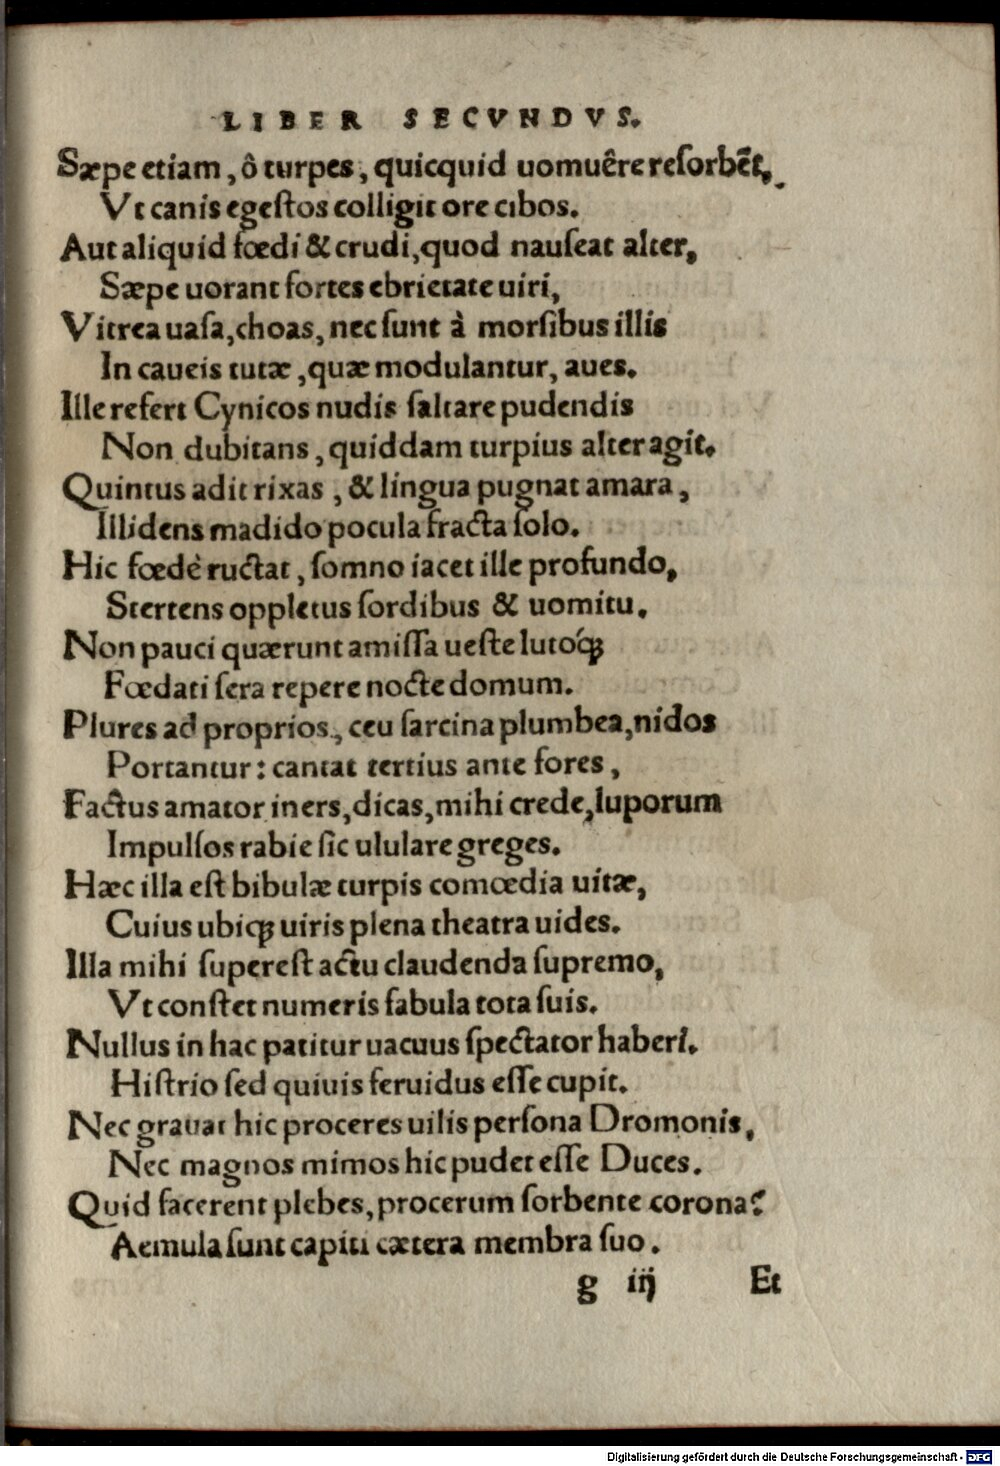 LIBER SECVNDVS.
Sæpe etiam, ô turpes, quicquid uomuêre resorbēt,
Vt canis egestos colligit ore cibos.
Aut aliquid fœdi & crudi, quod nauseat alter,
Sæpe uorant fortes ebrietate uiri,
Vitrea uasa, choas, nec sunt à morsibus illis
In caueis tutæ, quæ modulantur, aues.
Ille refert Cynicos nudis saltare pudendis
Non dubitans, quiddam turpius alter agit.
Quintus adit rixas, & lingua pugnat amara,
Illidens madido pocula fracta solo.
Hic fœdè ructat, somno iacet ille profundo,
Stertens oppletus sordibus & uomitu.
Non pauci quærunt amissa ueste lutoq́ꝫ
Fœdati sera repere nocte domum.
Plures ad proprios, ceu sarcina plumbea, nidos
Portantur: cantat tertius ante fores,
Factus amator iners, dicas, mihi crede, luporum
Impulsos rabie sic ululare greges.
Hæc illa est bibulæ turpis comœdia uitæ,
Cuius ubiqꝫ uiris plena theatra uides.
Illa mihi superest actu claudenda supremo,
Vt constet numeris fabula tota suis.
Nullus in hac patitur uacuus spectator haberi.
Histrio sed quiuis feruidus esse cupit.
Nec grauat hic proceres uilis persona Dromonis,
Nec magnos mimos hic pudet esse Duces.
Quid facerent plebes, procerum sorbente corona?
Aemula sunt capiti cætera membra suo.
g iij Et
Digitalisierung gefördert durch die Deutsche Forschungsgemeinschaft - DFG